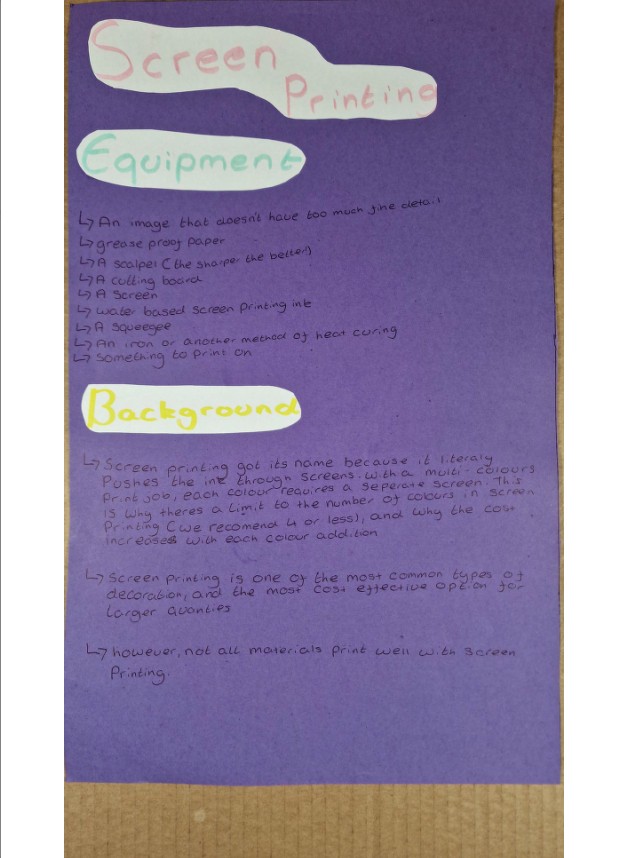 Screen
Printing
Equipment
↳ An image that doesn't have too much fine detail
↳ grease proof paper
↳ A scalpel (the sharper the better!)
↳ A cutting board
↳ A Screen
↳ water based screen printing ink
↳ A squeegee
↳ An iron or another method of heat curing
↳ Something to print on
Background
↳ Screen printing got its name because it literaly
Pushes the ink through screens. with a multi-colours
Print job, each colour requires a seperate screen. This
is why theres a limit to the number of colours in screen
Printing (we recomend 4 or less), and why the cost
increases with each colour addition
↳ Screen printing is one of the most common types of
decoration, and the most cost effective option for
larger quanties
↳ however, not all materials print well with screen
Printing.